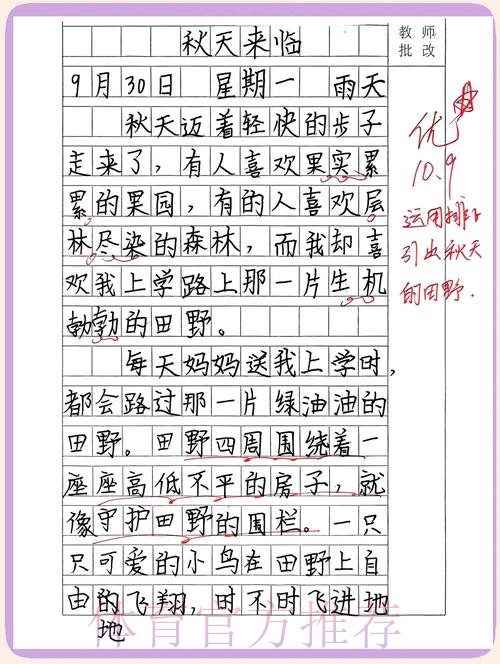 秋天来临
教师
批改
9月30日 星期一 雨天
秋天迈着轻快的步子
走来了，有人喜欢果实累
累的果园，有的人喜欢层
林尽染的森林，而我却喜
欢我上学路上那一片生机
勃勃的田野。
每天妈妈送我上学时，
都会路过那一片绿油油的
田野。田野四周围绕着一
座座高低不平的房子，就
像守护田野的围栏。一只
只可爱的小鸟在田野上自
由的飞翔，时不时飞进地
地
优
10.9
运用排比
引出秋天
的田野.
体育官方推荐